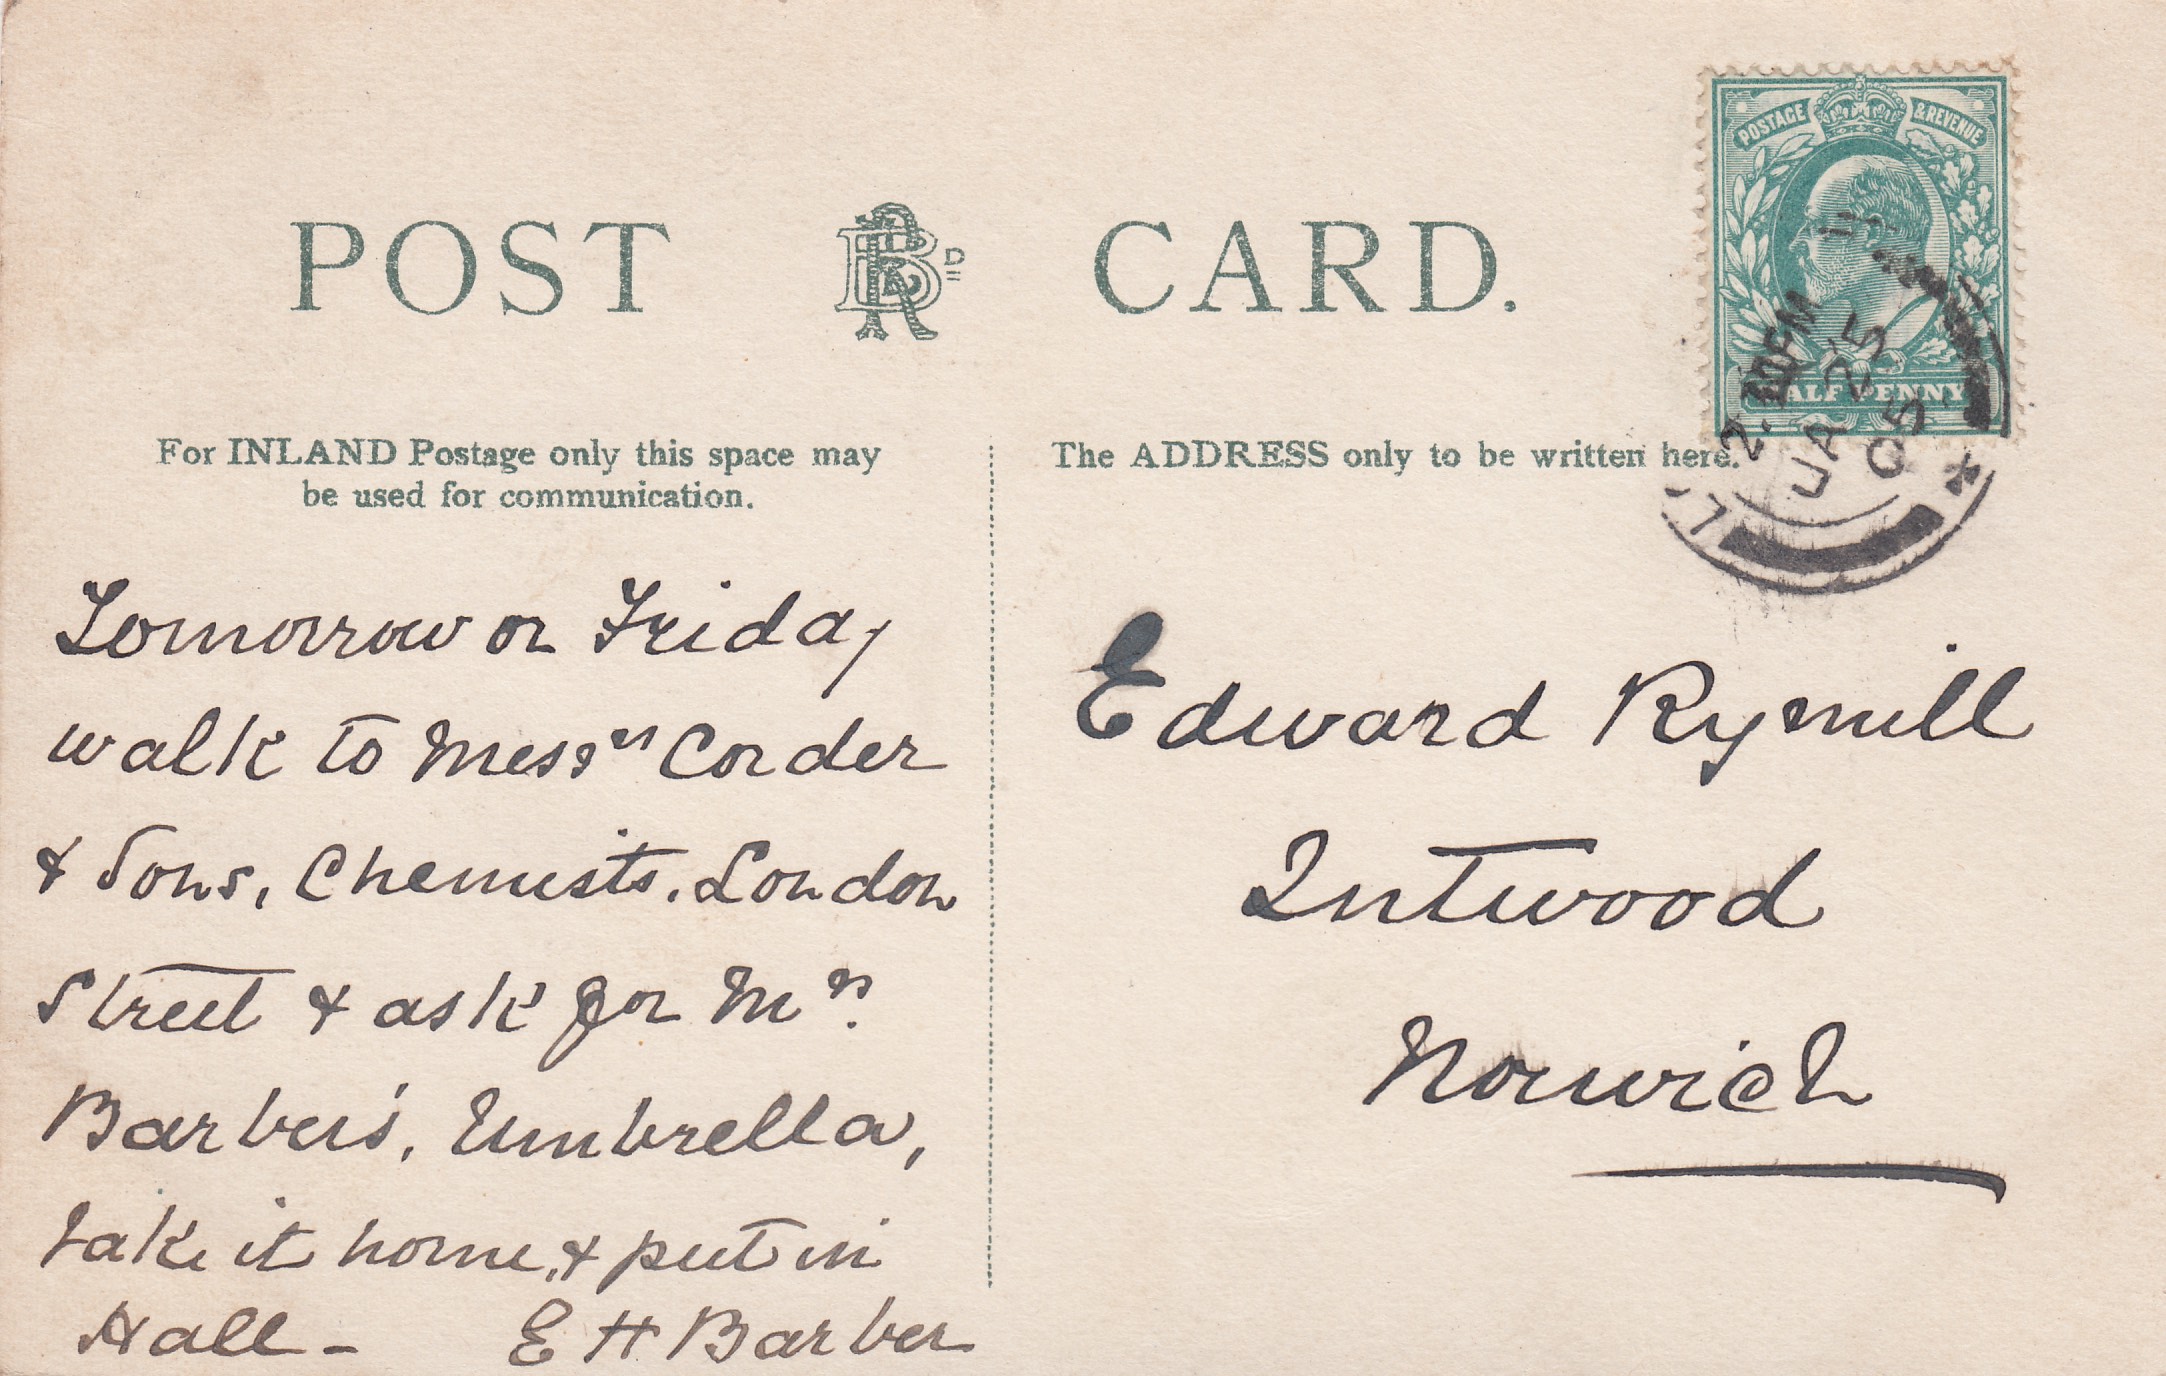 POST CARD.
POSTAGE & REVENUE
HALFPENNY
2. PM
JA 25
05
For INLAND Postage only this space may
be used for communication.
The ADDRESS only to be written here.
Tomorrow or Friday
walk to Messrs Corder
& Sons, Chemists. London
Street & ask for Mrs.
Barber's, Umbrella,
take it home, & put in
Hall -
E H Barber
Edward Rymill
Intwood
Norwich